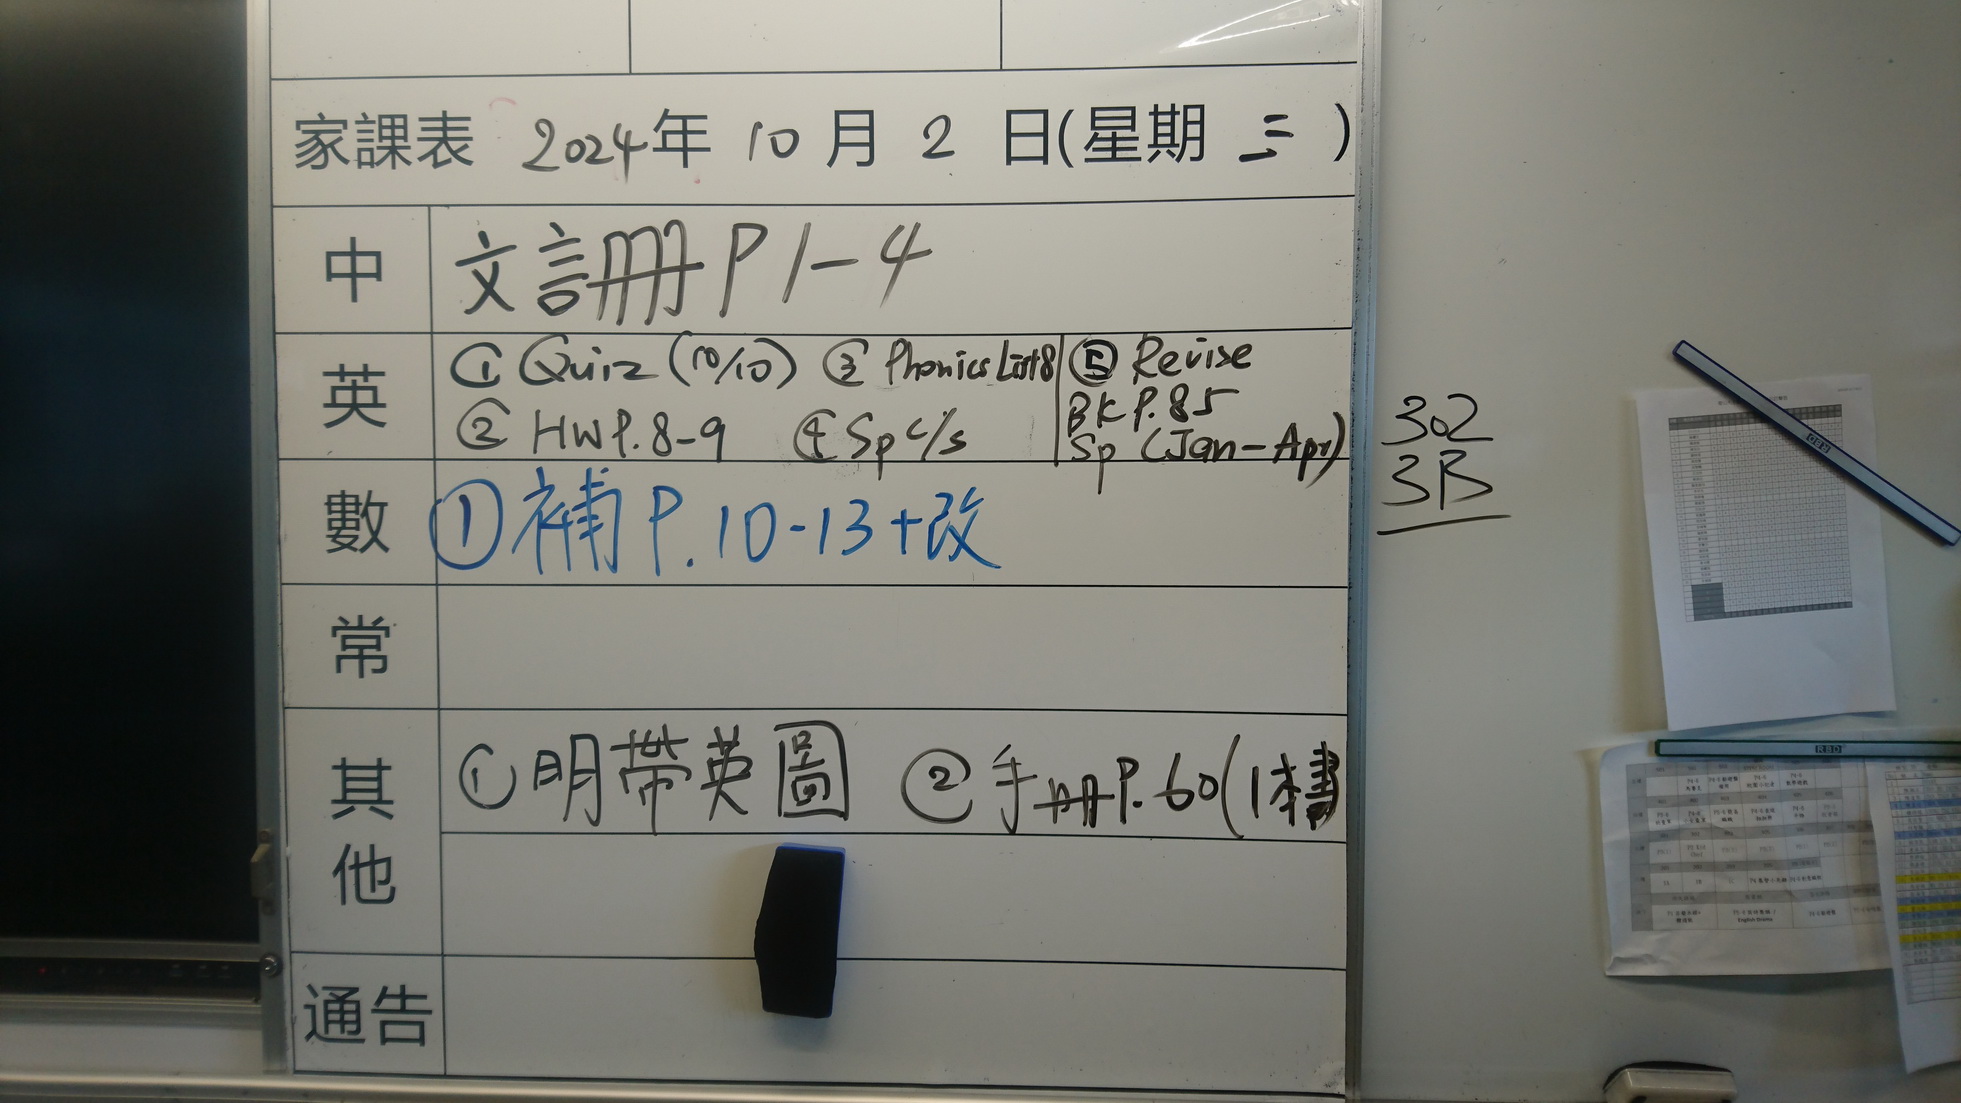 家課表 2024年 10 月 2 日(星期 三 )
中 文言冊 P1-4
英 ① Quiz (10/10) ③ Phonics List 8
② HW P.8-9 ④ Sp c/s
⑤ Revise
BK P.85
Sp (Jan-Apr)
數 ① 補 P.10-13+改
常
其他 ① 明帶英圖 ② 手冊P.60(1本書
通告
302
3B